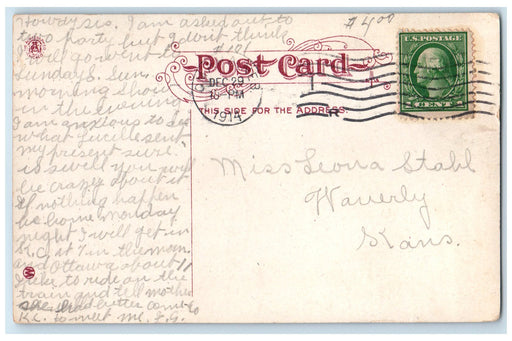 Howdy sis. I am asked out to
two part. but I don't think
I will go. went to
Sundays. Sun.
morning Snow
in the evening
I am anxious to see
what Lucile sent
my present sure
is swell you will
be crazy about it
If nothing happen
be home monday
night I will get in
K.C. at 7 in the morn.
and Ottawa about 11
I have to ride on the
train and tell mother
she had better come to
K.C. to meet me. F.G.
$400
Post Card
THIS SIDE FOR THE ADDRESS.
DEC 29
PM
1914
U.S. POSTAGE
1 CENT 1
Miss Leona Stahl
Waverly
Kans.